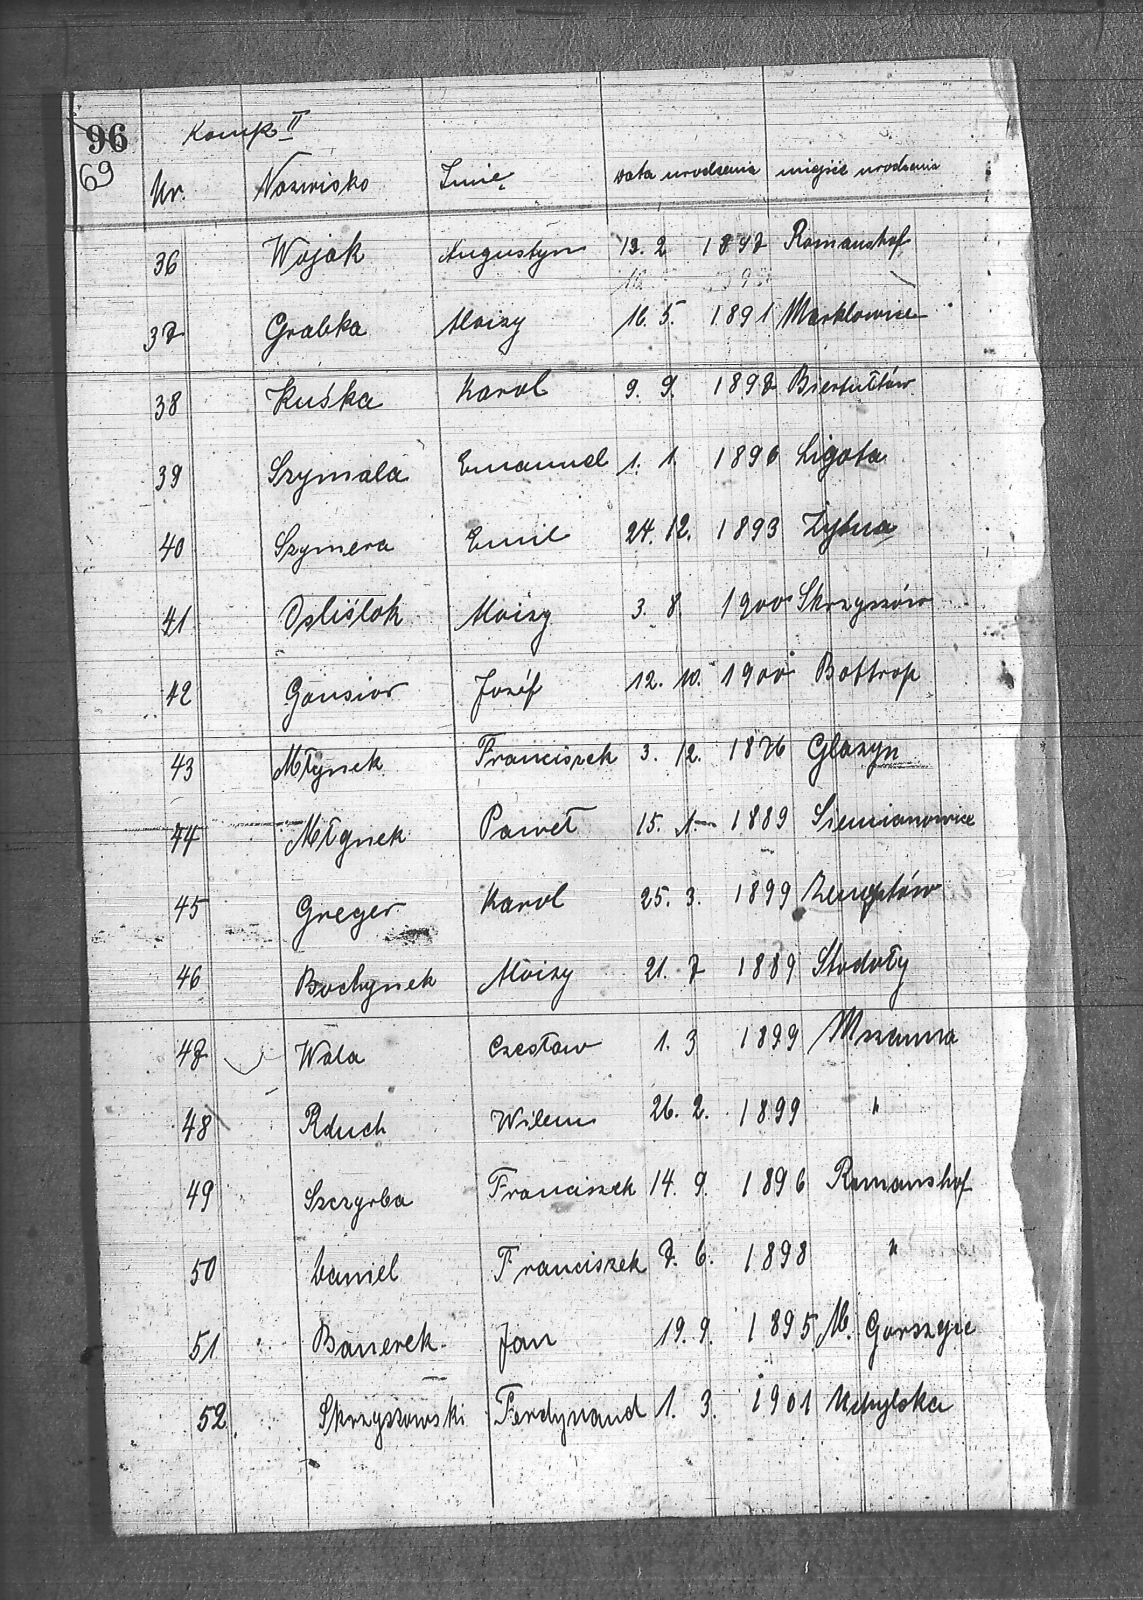 96
69
Komp II
Nr. Nazwisko Imię Data urodzenia miejsce urodzenia
36 Wojak Augustyn 13. 2 1897 Romanshof
37 Grabka Aloizy 16. 5. 1891 Marklowice
38 Kuśka Karol 9. 9. 1897 Biertułtów
39 Szymala Emanuel 1. 1. 1896 Ligota
40 Szymera Emil 24. 12. 1893 Żytna
41 Ośliślok Aloizy 3. 8. 1900 Skrzyszów
42 Gansior Józéf 12. 10. 1900 Bottrop
43 Młynek Franciszek 3. 12. 1876 Glazyn
44 Młynek Paweł 15. 1. 1889 Siemianowice
45 Greger Karol 25. 3. 1899
46 Bochynek Aloizy 21. 7 1889 Stodoły
47 Wala Czesław 1. 3 1899 Mszanna
48 Rduch Wilem 26. 2. 1899 "
49 Szczyrba Franciszek 14. 9. 1896 Romanshof
50 Daniel Franciszek 7. 6. 1898 "
51 Banerek Jan 19. 9. 1895 M. Gorszyce
52. Skrzyszowski Ferdynand 1. 3. 1901 Uchylska